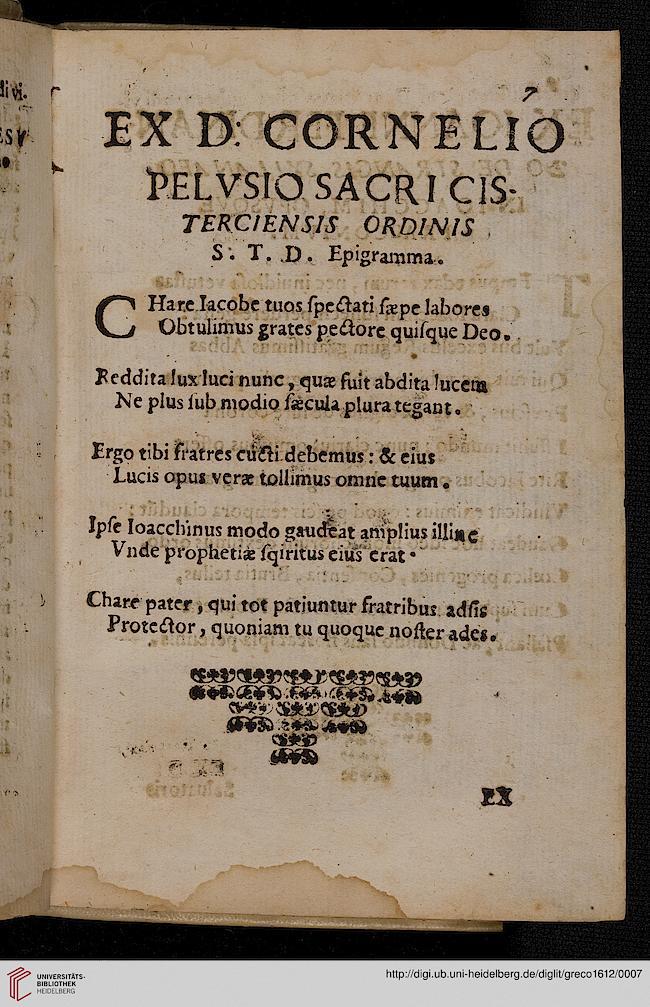 7
EX D. CORNELIO
PELVSIO SACRI CIS-
TERCIENSIS ORDINIS
S. T. D. Epigramma.
CHare Iacobe tuos ſpectati ſæpe labores
Obtulimus grates pectore quiſque Deo.
Reddita lux luci nunc, quæ fuit abdita lucem
Ne plus ſub modio ſæcula plura tegant.
Ergo tibi fratres cūcti debemus: & eius
Lucis opus veræ tollimus omne tuum.
Ipſe Ioacchinus modo gaudeat amplius illinc
Vnde prophetiæ ſqiritus eius erat.
Chare pater, qui tot patiuntur fratribus adſis
Protector, quoniam tu quoque noſter ades.
EX
UNIVERSITÄTS-
BIBLIOTHEK
HEIDELBERG
http://digi.ub.uni-heidelberg.de/diglit/greco1612/0007